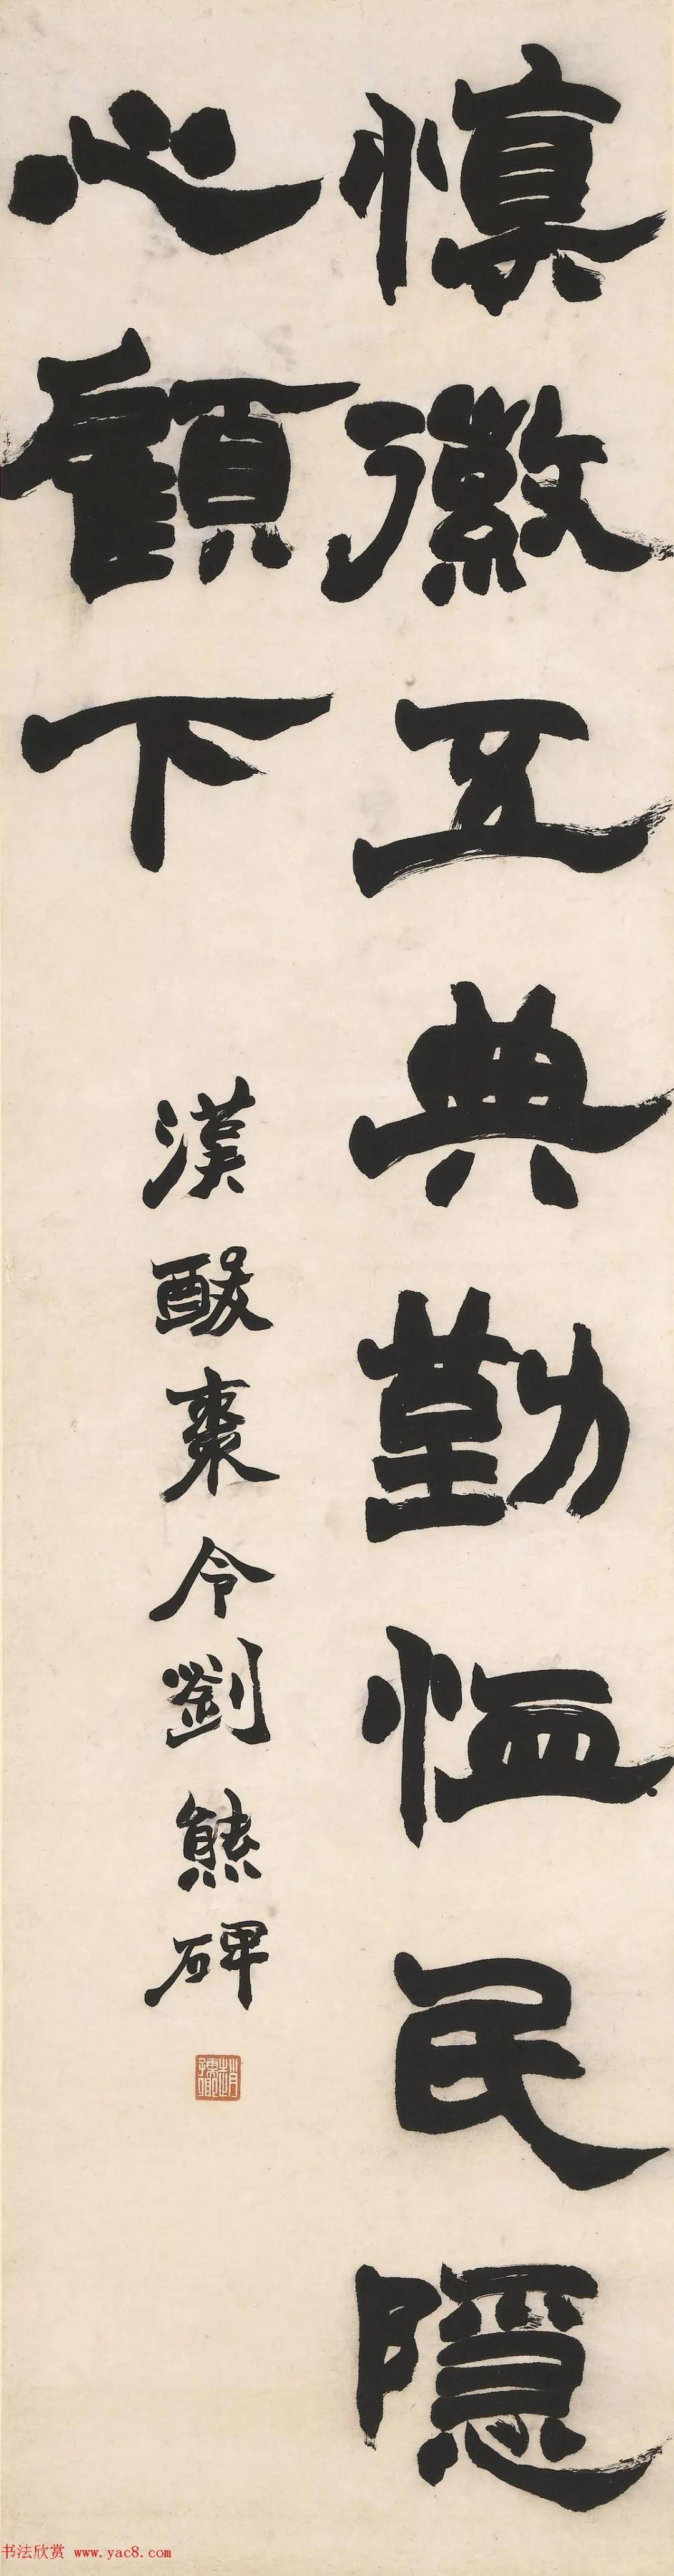 慎徽五典勤恤民隱
心顧下
漢酸棗令劉熊碑
趙之謙
书法欣赏 www.yac8.com